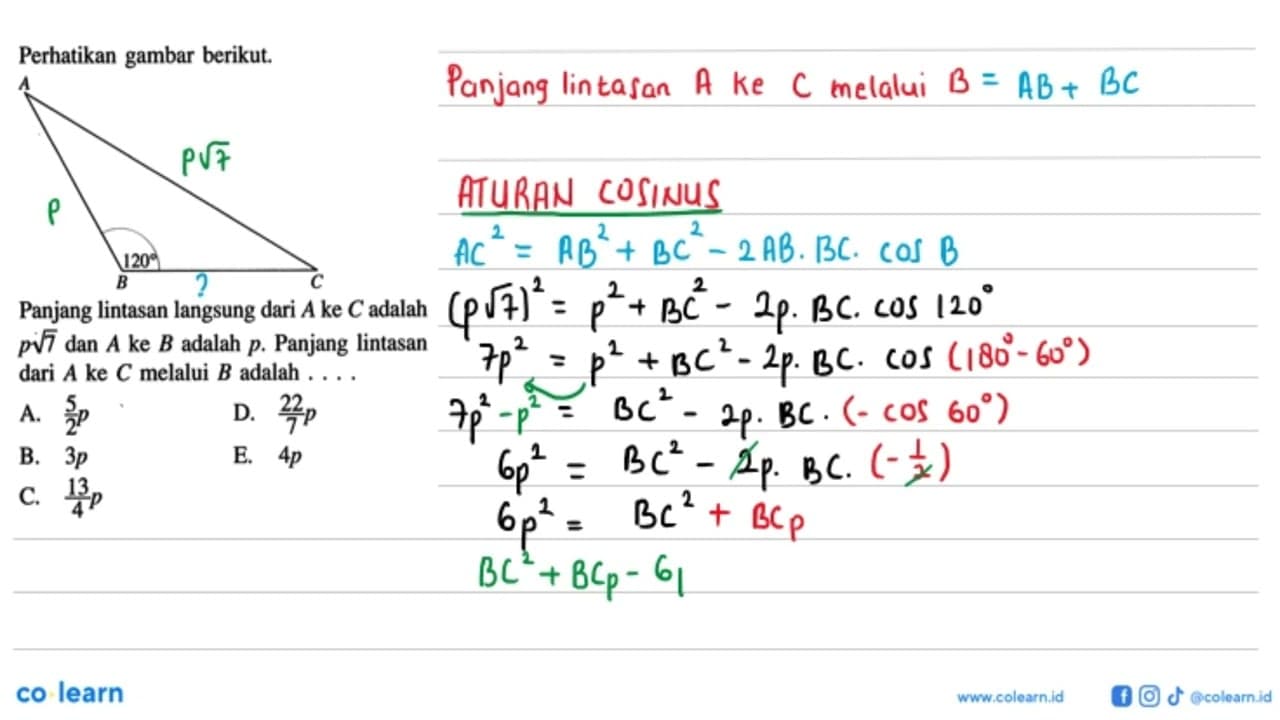 Perhatikan gambar berikut.
A
p√7
p
120°
B
?
C
Panjang lintasan langsung dari A ke C adalah
p√7 dan A ke B adalah p. Panjang lintasan
dari A ke C melalui B adalah . . . .
A. 5/2 p
D. 22/7 p
B. 3p
E. 4p
C. 13/4 p
Panjang lintasan A ke C melalui B = AB + BC
ATURAN COSINUS
AC² = AB² + BC² - 2AB. BC. cos B
(p√7)² = p² + BC² - 2p. BC. cos 120°
7p² = p² + BC² - 2p. BC. cos (180° - 60°)
7p² - p² = BC² - 2p. BC. (- cos 60°)
6p² = BC² - 2p. BC. (- 1/2)
6p² = BC² + BCp
BC² + BCp - 6
co learn
www.colearn.id
@colearn.id